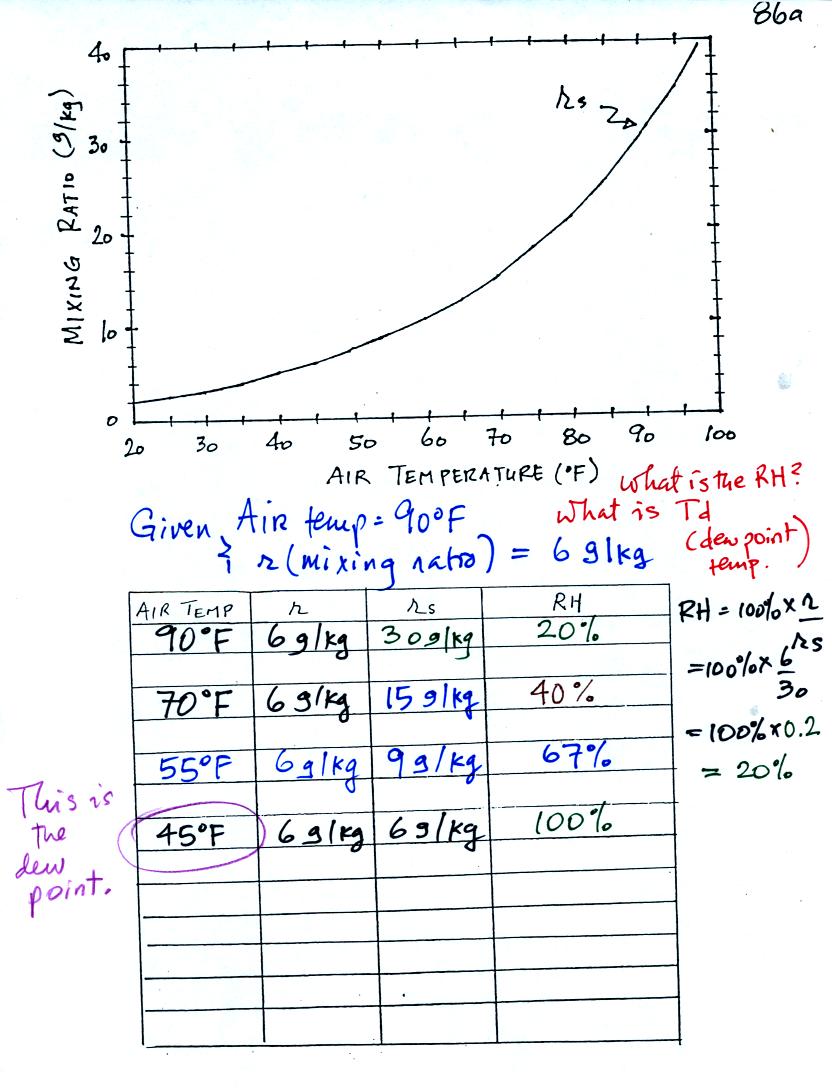 86a
40
30
20
10
0
MIXING RATIO (g/kg)
rs
20 30 40 50 60 70 80 90 100
AIR TEMPERATURE (°F)
What is the RH?
What is Td
(dew point)
temp.
Given Air temp = 90°F
& r (mixing ratio) = 6 g/kg
AIR TEMP r rs RH
90°F 6 g/kg 30 g/kg 20%
70°F 6 g/kg 15 g/kg 40%
55°F 6 g/kg 9 g/kg 67%
45°F 6 g/kg 6 g/kg 100%
RH = 100% x r/rs
= 100% x 6/30
= 100% x 0.2
= 20%
This is
the
dew
point.